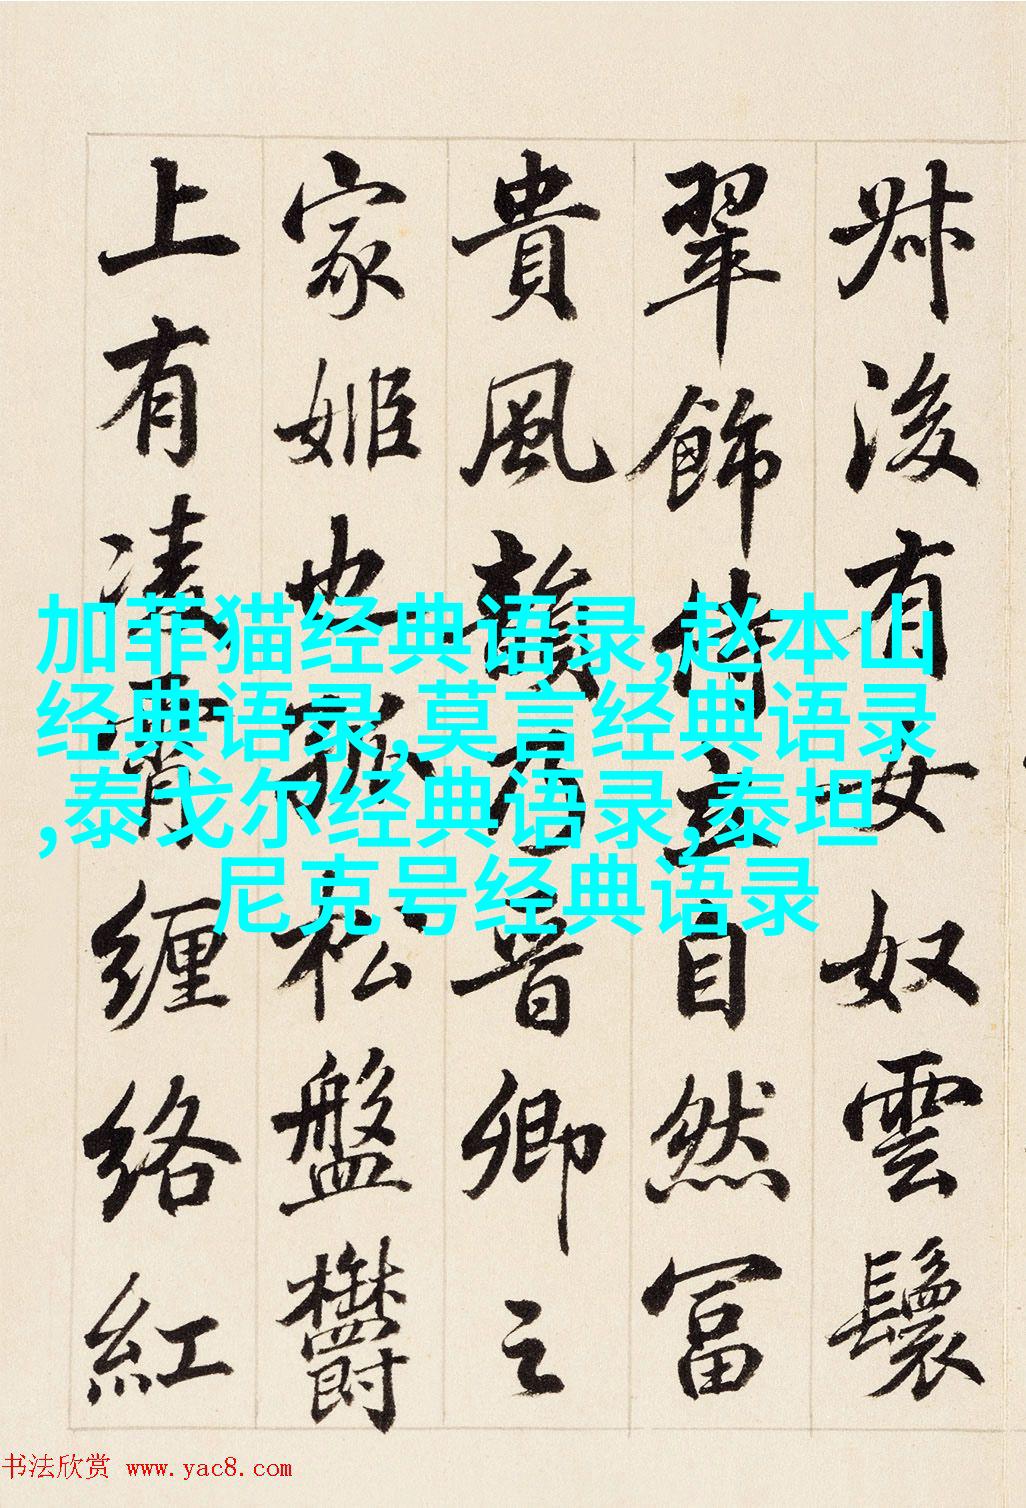 叔後有女奴雲鬟
翠飾侍立自然富
貴風韻乃晉卿之
家姬也孤松盤鬱
上有凌霄纏絡紅
加菲猫经典语录,赵本山
经典语录,莫言经典语录
,泰戈尔经典语录,泰坦
尼克号经典语录
书法欣赏 www.yac8.com